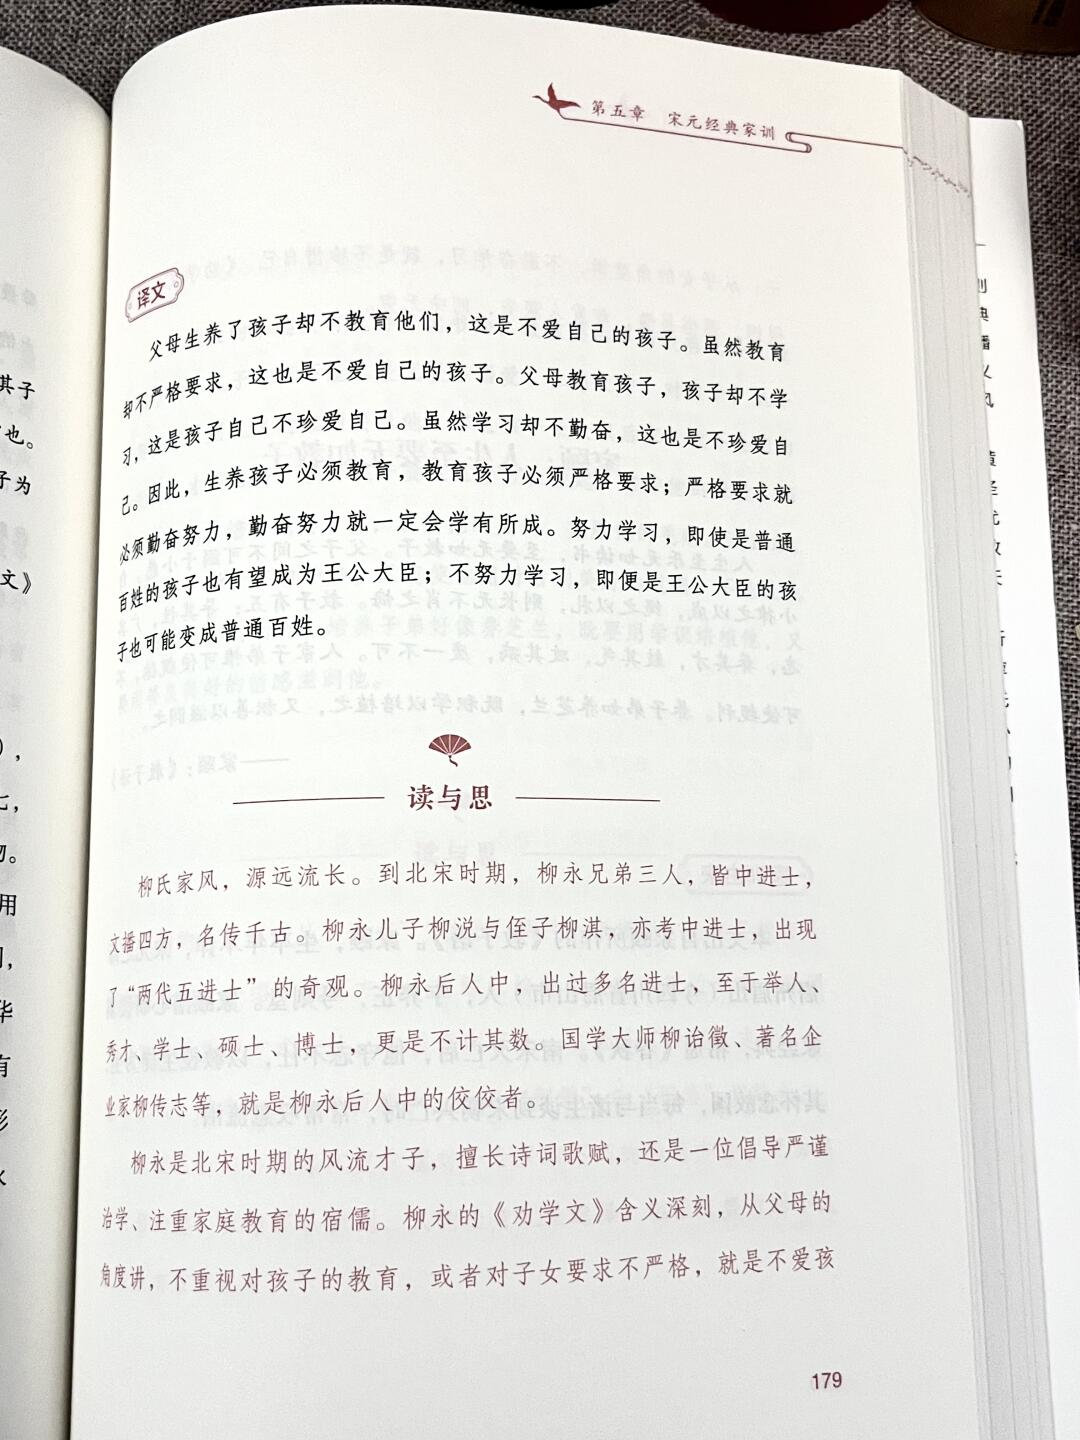 第五章 宋元经典家训
译文
父母生养了孩子却不教育他们，这是不爱自己的孩子。虽然教育
却不严格要求，这也是不爱自己的孩子。父母教育孩子，孩子却不学
习，这是孩子自己不珍爱自己。虽然学习却不勤奋，这也是不珍爱自
己。因此，生养孩子必须教育，教育孩子必须严格要求；严格要求就
必须勤奋努力，勤奋努力就一定会学有所成。努力学习，即使是普通
百姓的孩子也有望成为王公大臣；不努力学习，即便是王公大臣的孩
子也可能变成普通百姓。
读与思
柳氏家风，源远流长。到北宋时期，柳永兄弟三人，皆中进士，
文播四方，名传千古。柳永儿子柳涚与侄子柳淇，亦考中进士，出现
了“两代五进士”的奇观。柳永后人中，出过多名进士，至于举人、
秀才、学士、硕士、博士，更是不计其数。国学大师柳诒徵、著名企
业家柳传志等，就是柳永后人中的佼佼者。
柳永是北宋时期的风流才子，擅长诗词歌赋，还是一位倡导严谨
治学、注重家庭教育的宿儒。柳永的《劝学文》含义深刻，从父母的
角度讲，不重视对孩子的教育，或者对子女要求不严格，就是不爱孩
179
其子
也。
子为
文》
七，
用
华
有